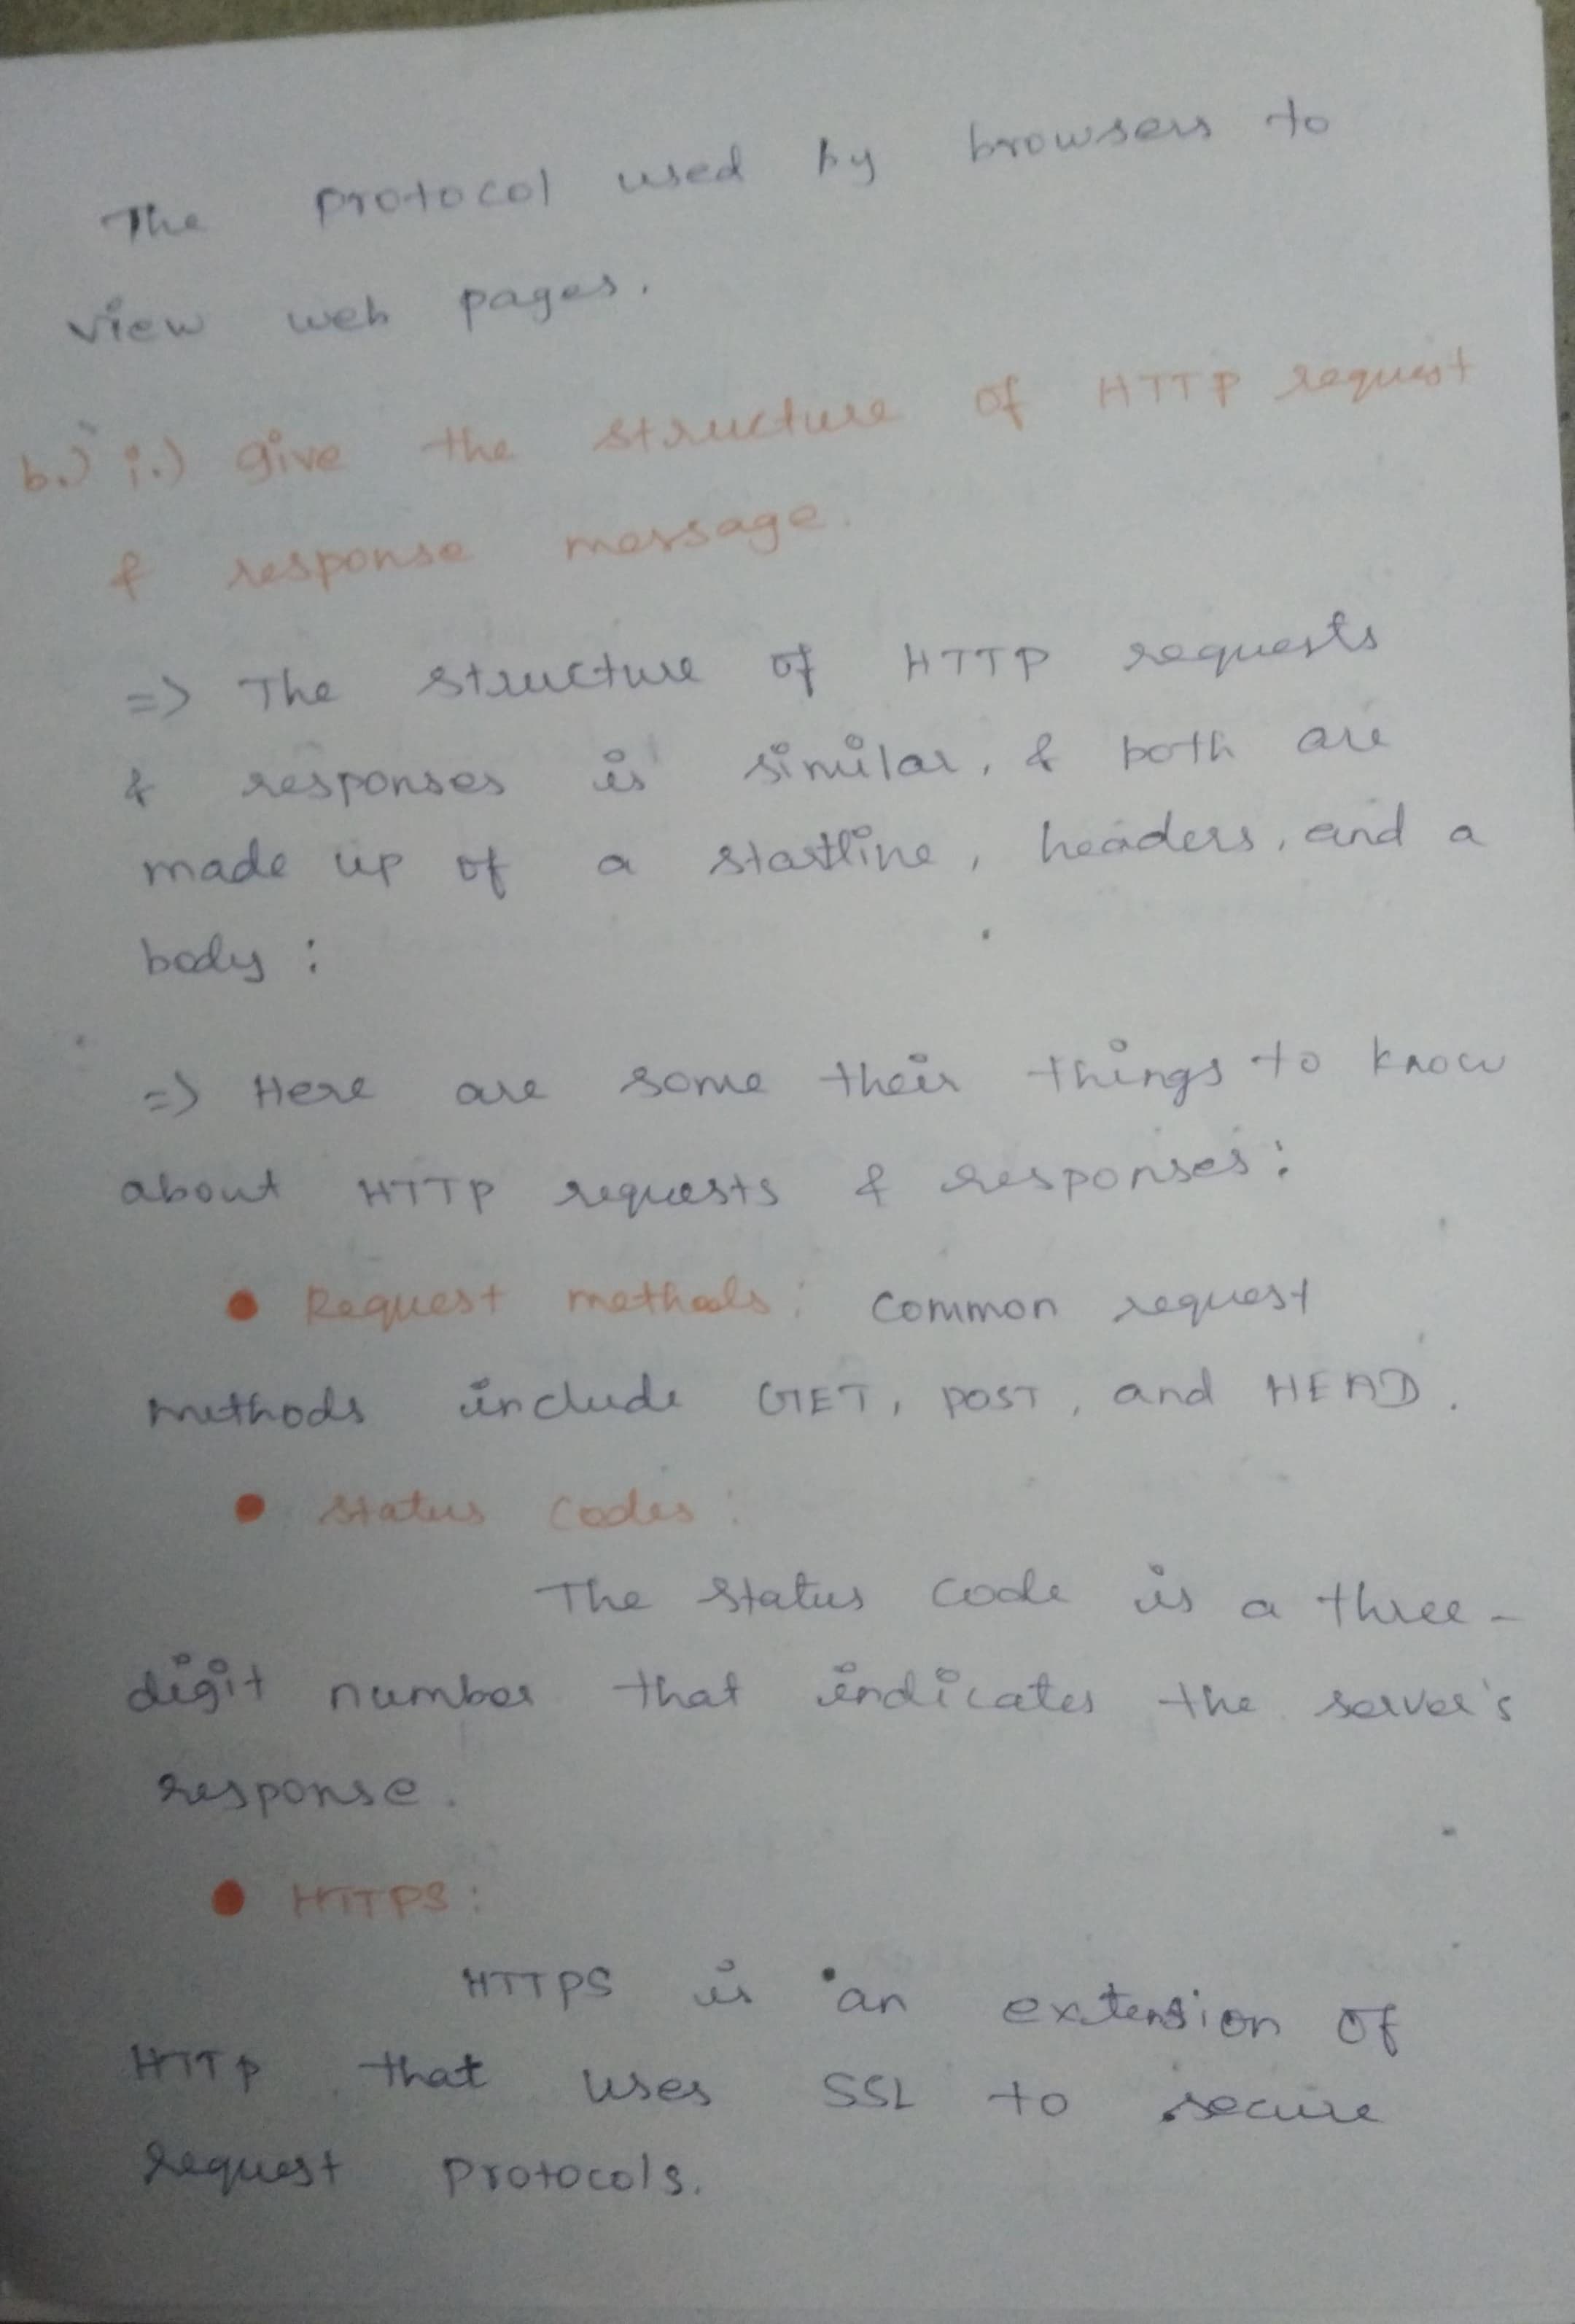 The protocol used by browsers to
view web pages.
b.) i.) give the structure of HTTP request
& response message.
=> The structure of HTTP requests
& responses is similar, & both are
made up of a startline, headers, and a
body :
=> Here are some their things to know
about HTTP requests & responses:
• Request methods: Common request
methods include GET, POST, and HEAD.
• Status Codes:
The status code is a three-
digit number that indicates the server's
response.
• HTTPS:
HTTPS is an extension of
HTTP that uses SSL to secure
request protocols.